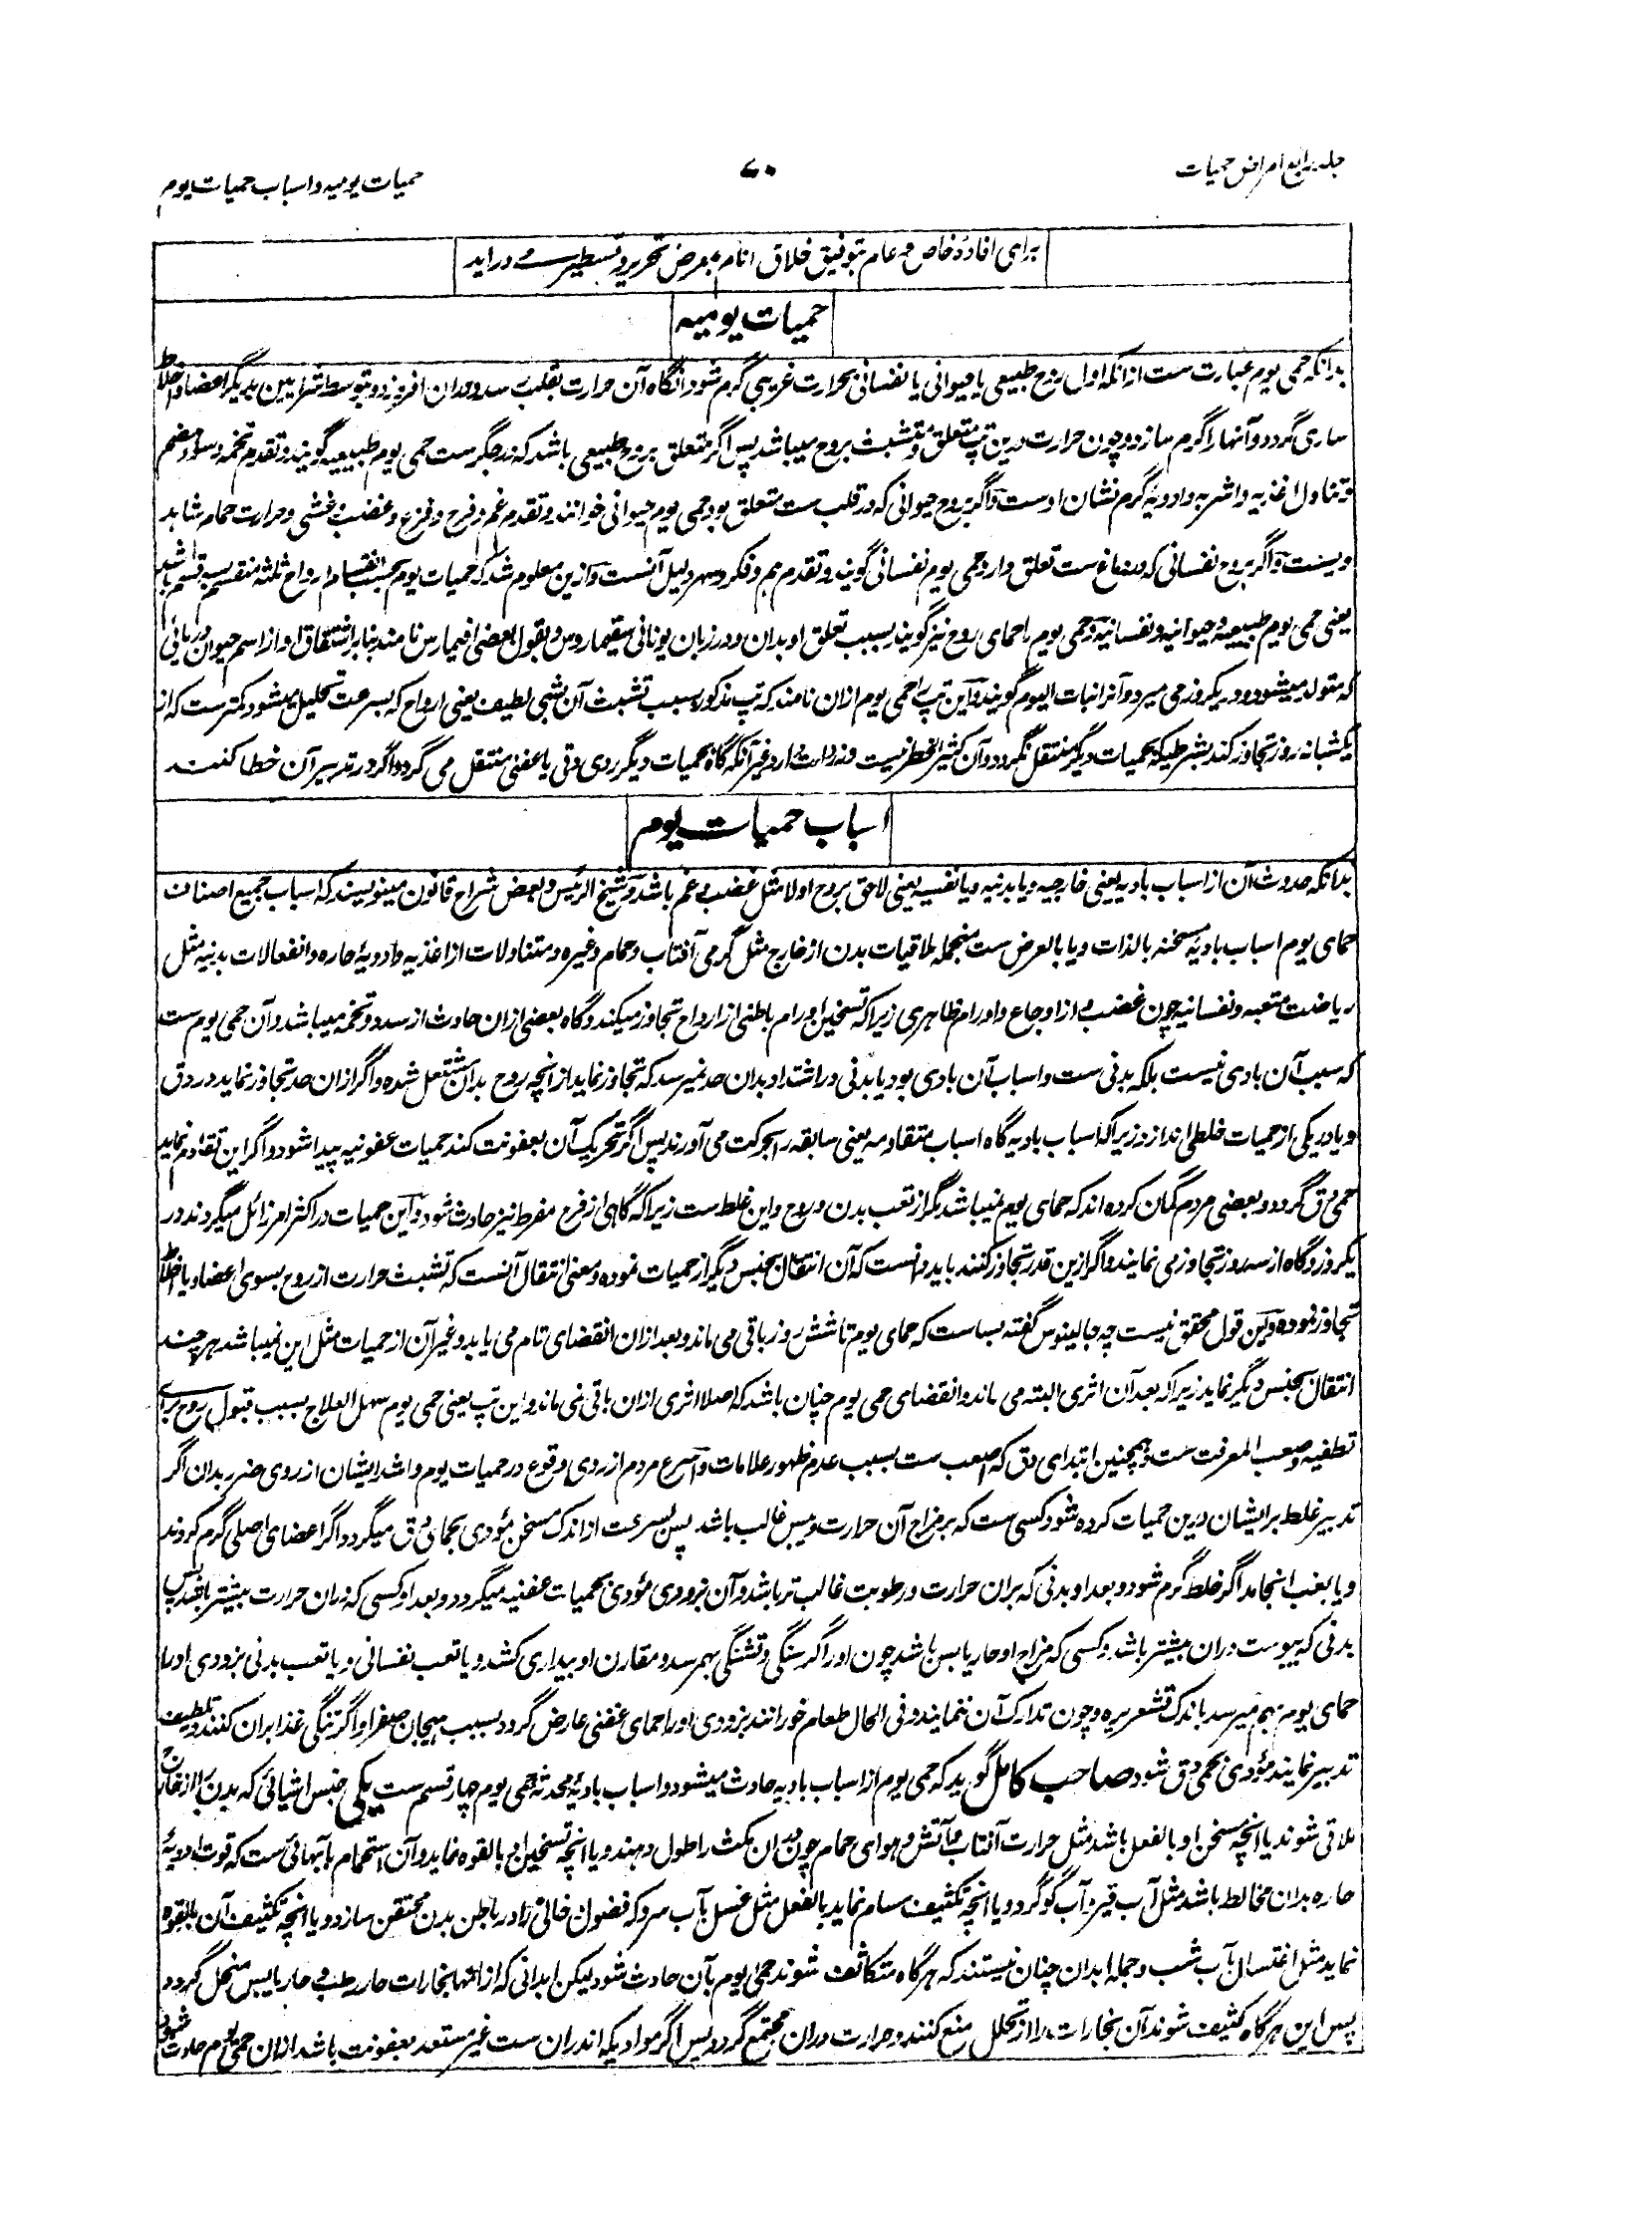 جلد رابع امراض حمیات
۷۰
حمیات یومیه و اسباب حمیات یوم
برای افادهٔ خاص و عام بتوفیق خلاق انام بمعرض تحریر و تسطیر می در اید
حمیات یومیه
بدانکه حمی یوم عبارت ست از انکه اول روح طبیعی یا حیوانی یا نفسانی بحرارت غریبی گرم شود انگاه آن حرارت بقلب رسد و دران افروزد و بتوسط شرایین بدیگر اعضا و اخلاط
ساری گردد و آنها را گرم سازد و چون حرارت درین تپ متعلق و متشبث بروح میباشد پس اگر متعلق بروح طبیعی باشد که در جگر ست حمی یوم طبیعیه گویند و تقدم تخمه و سوء هضم
و تناول اغذیه و اشربه و ادویهٔ گرم نشان اوست و اگر بروح حیوانی که در قلب ست متعلق بود حمی یوم حیوانی خوانند و تقدم غم و فرح و فزع و غضب و غشی و حرارت حمام شاهد
ویست و اگر بروح نفسانی که در دماغ ست تعلق دارد حمی یوم نفسانی گویند و تقدم هم و فکر و سهر دلیل آنست و ازین معلوم شد که حمیات یوم بحسب انقسام ارواح ثلثه منقسم بسه قسم باشد
یعنی حمی یوم طبیعیه و حیوانیه و نفسانیه و حمی یوم را حمای روح نیز گویند بسبب تعلق او بدان و در زبان یونانی سقیماروس و بقول بعضی افیمارس نامند بنابر اشتقاق او از اسم حیوان دریائی
که متولد میشود و در یکروز می میرد و آنرا نبات الیوم گویند و این تپ را حمی یوم ازان نامند که تپ مذکور بسبب تشبث آن بشی لطیف یعنی ارواح که بسرعت تحلیل میشود کمتر ست که از
یکشبانه روز تجاوز کند بشرطیکه بحمیات دیگر منتقل نگردد و آن کثیر الخطر نیست و نه رداءت دارد غیر آنکه گاه بحمیات دیگر ردی دقی یا عفنی منتقل می گردد اگر در تدبیر آن خطا کنند
اسباب حمیات یوم
بدانکه حدوث آن از اسباب بادیه یعنی خارجیه و یا بدنیه و یا نفسیه یعنی لاحق بروح اولا مثل غضب و غم باشد و شیخ الرئیس و بعض شراح قانون مینویسند که اسباب جمیع اصناف
حمای یوم اسباب بادیهٔ مسخنه بالذات و یا بالعرض ست منجمله ملاقیات بدن از خارج مثل گرمی آفتاب و حمام و غیره و متناولات از اغذیه و ادویهٔ حاره و انفعالات بدنیه مثل
ریاضت متعبه و نفسانیه چون غضب و از اوجاع و اورام ظاهری زیرا که تسخین اورام باطنی از ارواح تجاوز میکند و گاه بعضی ازان حادث از سدد و تخمه میباشد و آن حمی یوم ست
که سبب آن بادی نیست بلکه بدنی ست و اسباب آن بادی بود یا بدنی در اشتداد بدان حد نمیرسد که تجاوز نماید از انچه روح بدان مشتعل شده و اگر ازان حد تجاوز نماید در دق
و یا در یکی از حمیات خلطی اندازد زیرا که اسباب بادیه گاه اسباب متقادمه یعنی سابقه را بحرکت می آورند پس اگر تحریک آن بعفونت کند حمیات عفونیه پیدا شود و اگر این تقادم نماید
حمی دق گردد و بعضی مردم گمان کرده اند که حمای یوم نمیباشد مگر از تعب بدن و روح و این غلط ست زیرا که گاهی از فرح مفرط نیز حادث شود و این حمیات در اکثر امر زائل میگردند در
یکروز و گاه از سه روز تجاوز می نمایند و اگر ازین قدر تجاوز کنند باید دانست که آن انتقال بجنس دیگر از حمیات نموده و معنی انتقال آنست که تشبث حرارت از روح بسوی اعضا و یا اخلاط
تجاوز نموده و این قول محقق نیست چه جالینوس گفته بساست که حمای یوم تا شش روز باقی می ماند و بعد ازان انقضای تام می یابد و غیر آن از حمیات مثل این نمیباشد هر چند
انتقال بجنس دیگر نماید زیرا که بعد آن اثری البته می ماند و انقضای حمی یوم چنان باشد که اصلا اثری ازان باقی نمی ماند و این تپ یعنی حمی یوم سهل العلاج بسبب قبول روح برای
تطفیه و صعب المعرفت ست و همچنین ابتدای دق که اصعب ست بسبب عدم ظهور علامات و اسرع مردم از روی وقوع در حمیات یوم و اشد ایشان از روی ضرر بدان اگر
تدبیر غلط بر ایشان درین حمیات کرده شود کسی ست که بر مزاج آن حرارت و یبس غالب باشد پس بسرعت از اندک مسخن مؤدی بحمای دق میگردد اگر اعضای اصلی گرم گردند
و یا بغب انجامد اگر خلط گرم شود و بعد او بدنی که بران حرارت و رطوبت غالب تر باشد و آن بزودی مؤدی بحمیات عفنیه میگردد و بعد او کسی که دران حرارت بیشتر باشد پس
بدنی که یبوست دران بیشتر باشد و کسی که مزاج او حار یابس باشد چون او را گرسنگی و تشنگی بهم رسد و مقارن او بیداری کشد و یا تعب نفسانی و یا تعب بدنی بزودی او را
حمای یوم بهم میرسد باندک قشعریره و چون تدارک آن ننمایند و فی الحال طعام خورانند بزودی او را حمای عفنی عارض گردد بسبب هیجان صفرا و اگر تنگی غذا بران کنند و تلطیف
تدبیر نمایند مؤدی بحمی دق شود صاحب کامل گوید که حمی یوم از اسباب بادیه حادث میشود و اسباب بادیهٔ محدثه حمی یوم چهار قسم ست یکی جنس اشیائی که بدن را از خارج
ملاقی شوند یا انچه مسخن او بالفعل باشد مثل حرارت آفتاب و آتش و هوای حمام چون دران مکث را طول دهند و یا انچه تسخین او بالقوه نماید و آن استحمام بآبهائی ست که قوت ادویهٔ
حاره بدان مخالط باشد مثل آب قیر و آب گوگرد و یا انچه تکثیف مسام نماید بالفعل مثل غسل بآب سرد که فضول دخانی را در باطن بدن محتقن سازد و یا انچه تکثیف آن بالقوه
نماید مثل اغتسال بآب شب و جمله ابدان چنان نیستند که هرگاه متکاثف شوند حمی یوم بآن حادث شود لیکن ابدانی که از انها بخارات حار رطب و حار یابس منحل گردد
پس این هرگاه کثیف شوند آن بخارات را از تحلل منع کنند و حرارت دران مجتمع گردد پس اگر موادیکه اندران ست غیر مستعد بعفونت باشد ازان حمی یوم حادث شود